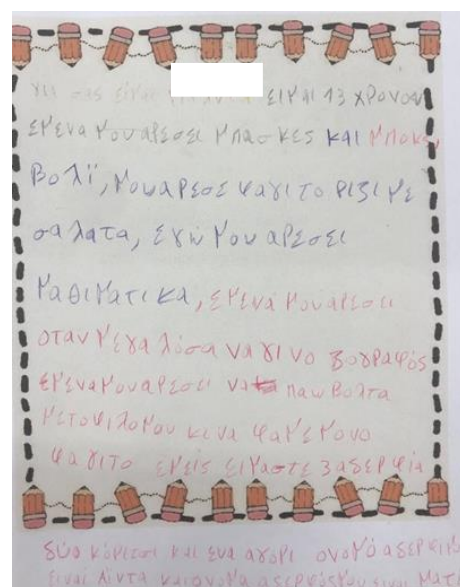 γει σας είμαι ειμαι 13 χρονον
εμενα μου αρεσει μπασκες και μποκς,
Βολϊ, μου αρεσε φαγι το ριζι με
σαλατα, εγω μου αρεσει
μαθιματικα, εμενα μου αρεσει
οταν μεγαλόσα να γινο ζογραφός
εμενα μου αρεσει να παω βολτα
με το φιλο μου κι να φαμε μονο
φαγιτο εμεις ειμαστε 3 αδερφια
δύο κόριτσι και ενα αγορι ονομό αδερφι
ειναι λιντα και ονομα αδερφός μου ειναι ματ